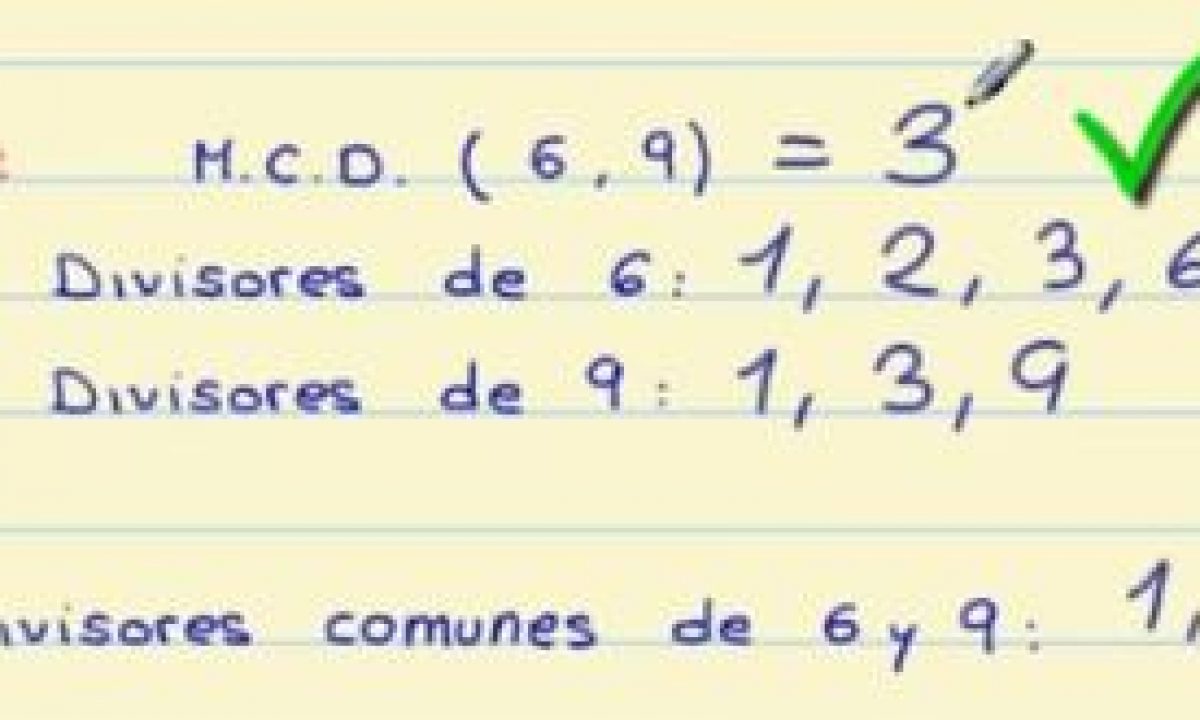 M.C.D. (6,9) = 3
Divisores de 6: 1, 2, 3, 6
Divisores de 9: 1, 3, 9
comunes de 6 y 9: 1,